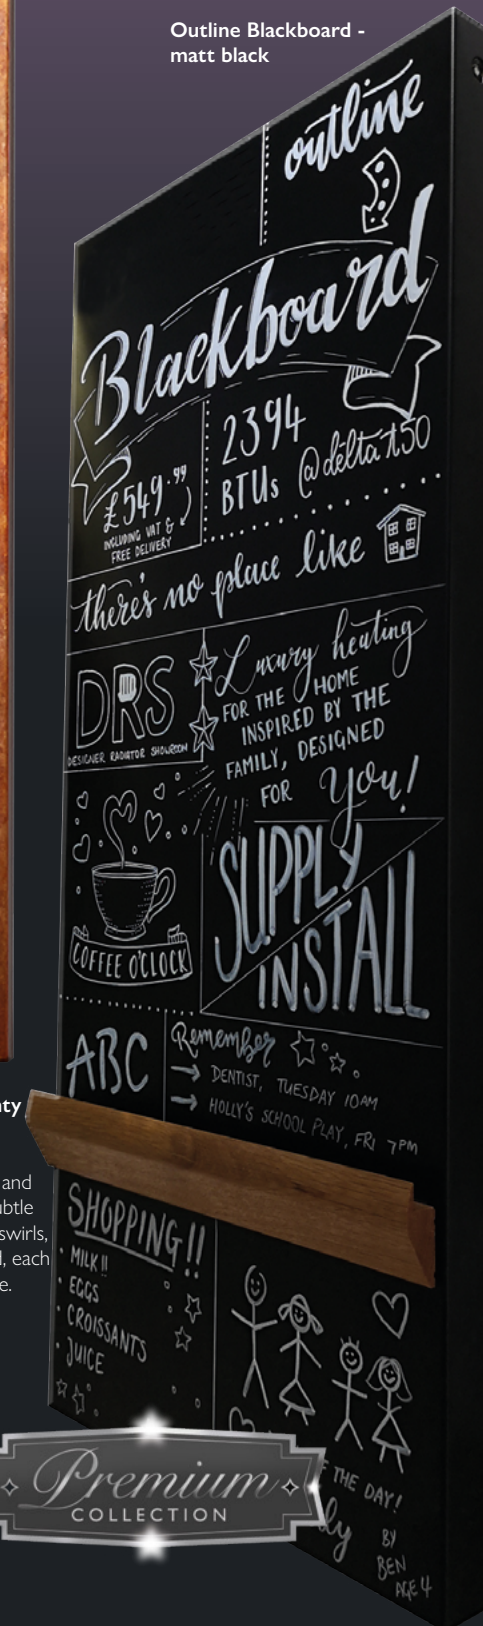 Outline Blackboard -
matt black
outline
Blackboard
£549.99
INCLUDING VAT &
FREE DELIVERY
2394
BTUs @delta t50
there's no place like
DRS
DESIGNER RADIATOR SHOWROOM
Luxury heating
FOR THE HOME
INSPIRED BY THE
FAMILY, DESIGNED
FOR You!
COFFEE O'CLOCK
SUPPLY
INSTALL
ABC
Remember
→ DENTIST, TUESDAY 10AM
→ HOLLY'S SCHOOL PLAY, FRI 7PM
and
swirls,
each
SHOPPING!!
· MILK!!
· EGGS
· CROISSANTS
· JUICE
THE DAY!
BY
BEN
AGE 4
Premium
COLLECTION